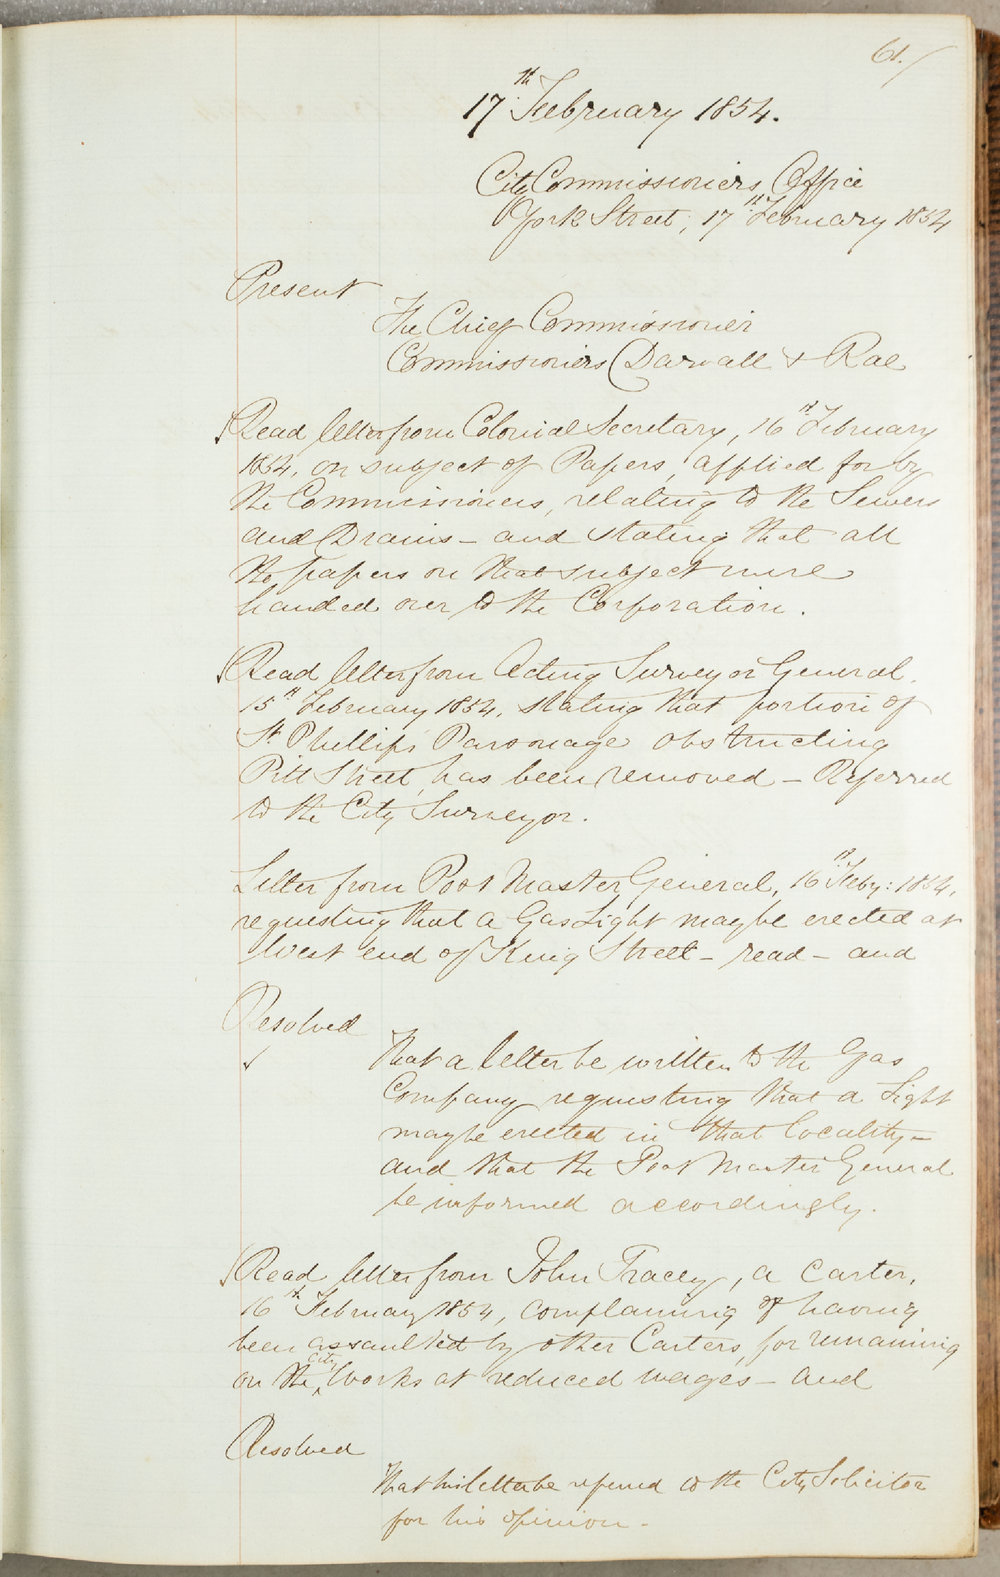 61./
17th February 1854.
City Commissioners Office
York Street, 17th February 1854
Present
The Chief Commissioner
Commissioners Darvall & Rae
Read letter from Colonial Secretary, 16th February
1854, on subject of Papers, applied for by
the Commissioners, relating to the Sewers
and Drains – and stating that all
the papers on that subject were
handed over to the Corporation.
Read letter from Acting Surveyor General,
15th February 1854, stating that portion of
St. Phillip's Parsonage obstructing
Pitt Street, has been removed – Referred
to the City Surveyor.
Letter from Post Master General, 16th Feby: 1854,
requesting that a Gas Light may be erected at
West end of King Street – read – and
Resolved
That a letter be written to the Gas
Company requesting that a Light
may be erected in that locality –
and that the Post Master General
be informed accordingly.
Read letter from John Tracey, a carter,
16th February 1854, complaining of having
been assaulted by other Carters, for remaining
on the City Works at reduced wages – and
Resolved
That his letter be referred to the City Solicitor
for his opinion –